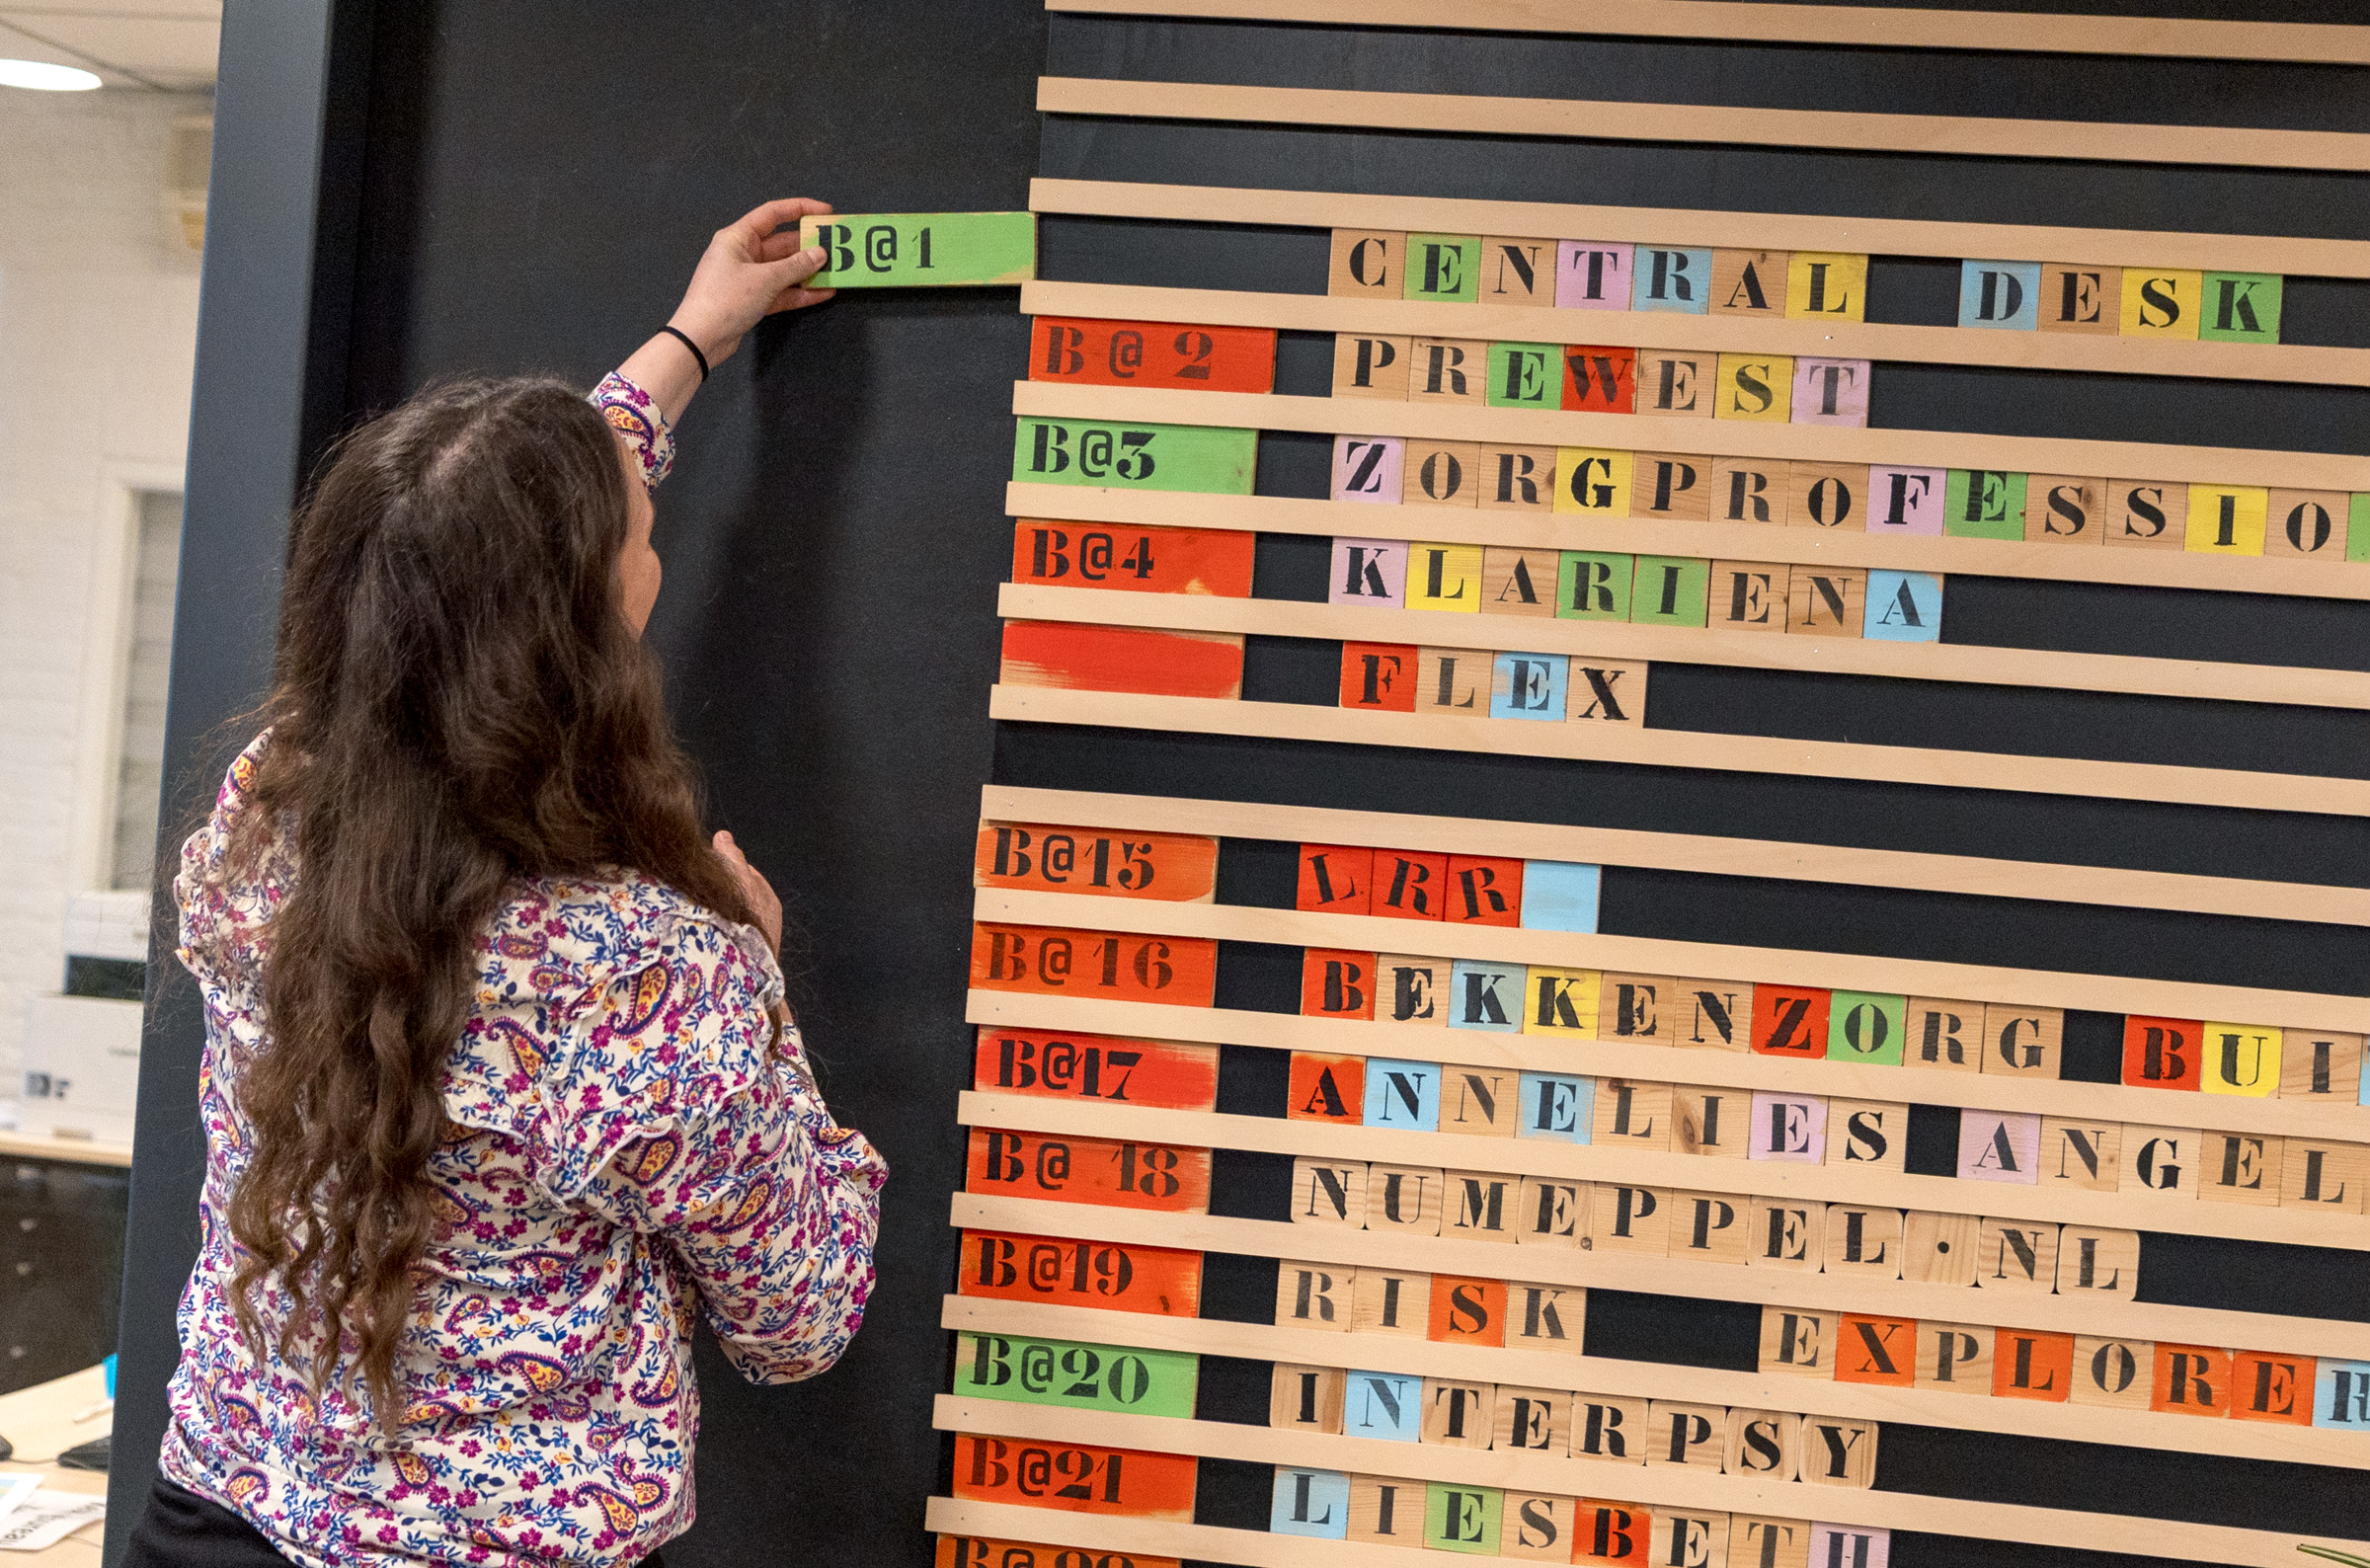 B@1 CENTRAL DESK
B@2 PREWEST
B@3 ZORGPROFESSIO
B@4 KLARIENA
FLEX
B@15 LRR
B@16 BEKKENZORG BUI
B@17 ANNELIES ANGEL
B@18 NUMEPPEL.NL
B@19 RISK EXPLORER
B@20 INTERPSY
B@21 LIESBETH
B@22